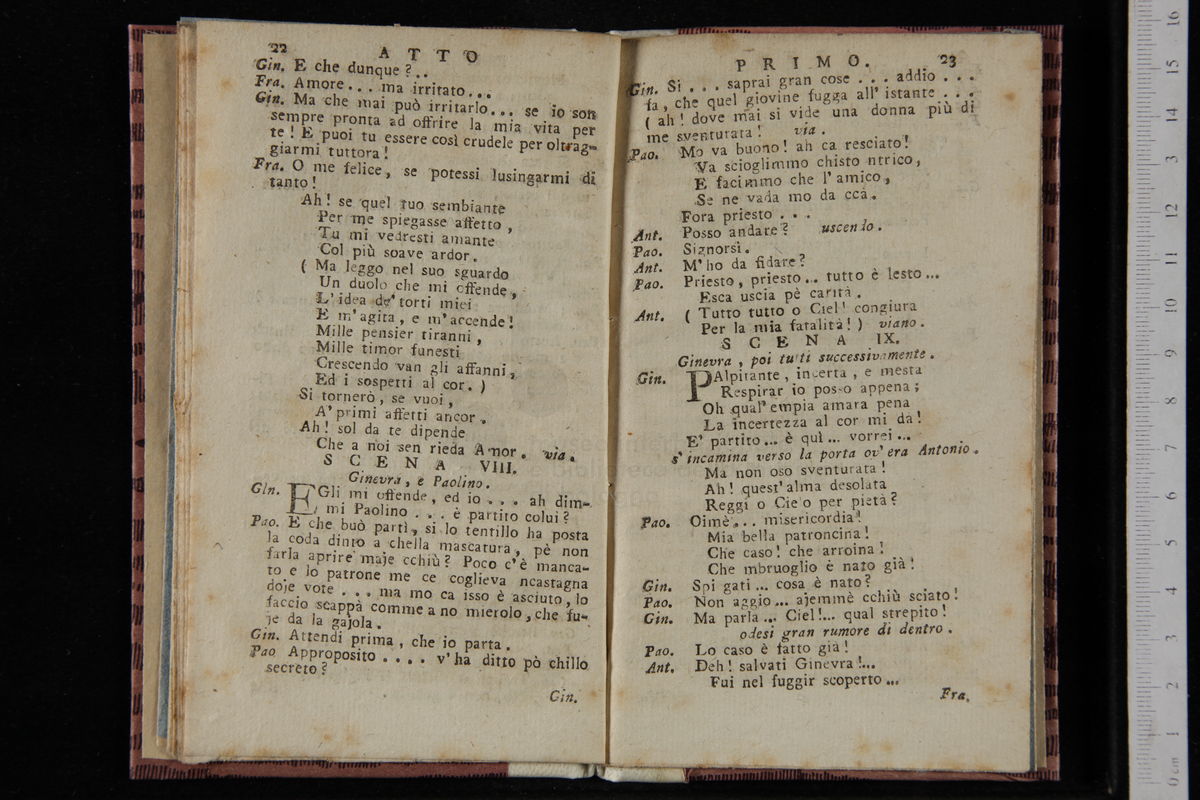 22
A T T O
Gin. E che dunque?..
Fra. Amore... ma irritato...
Gin. Ma che mai può irritarlo... se io son
sempre pronta ad offrire la mia vita per
te! E puoi tu essere così crudele per oltrag-
giarmi tuttora!
Fra. O me felice, se potessi lusingarmi di
tanto!
Ah! se quel tuo sembiante
Per me spiegasse affetto,
Tu mi vedresti amante
Col più soave ardor.
( Ma leggo nel suo sguardo
Un duolo che mi offende,
L'idea de' torti miei
E m'agita, e m'accende!
Mille pensier tiranni,
Mille timor funesti
Crescendo van gli affanni,
Ed i sospetti al cor. )
Si tornerò, se vuoi,
A' primi affetti ancor.
Ah! sol da te dipende
Che a noi sen rieda Amor. via.
S C E N A VIII.
Ginevra, e Paolino.
Gin. EGli mi offende, ed io... ah dim-
mi Paolino... è partito colui?
Pao. E che buò partì, si lo tentillo ha posta
la coda dinto a chella mascatura, pè non
farla aprire maje cchiù? Poco c'è manca-
to e lo patrone me ce coglieva ncastagna
doje vote... ma mo ca isso è asciuto, lo
faccio scappà comme a no mierolo, che fu-
je da la gajola.
Gin. Attendi prima, che io parta.
Pao Approposito.... v'ha ditto pò chillo
secreto?
Gin.
P R I M O.
23
Gin. Si... saprai gran cose... addio...
fa, che quel giovine fugga all'istante...
( ah! dove mai si vide una donna più di
me sventurata! via.
Pao. Mo va buono! ah ca resciato!
Va scioglimmo chisto ntrico,
E facimmo che l'amico,
Se ne vada mo da ccà.
Fora priesto...
Ant. Posso andare? uscendo.
Pao. Signorsì.
Ant. M'ho da fidare?
Pao. Priesto, priesto... tutto è lesto...
Esca uscia pè carità.
Ant. ( Tutto tutto o Ciel! congiura
Per la mia fatalità! ) viano.
S C E N A IX.
Ginevra, poi tutti successivamente.
Gin. PAlpitante, incerta, e mesta
Respirar io posso appena;
Oh qual' empia amara pena
La incertezza al cor mi dà!
E' partito... è quì... vorrei...
s'incamina verso la porta ov'era Antonio.
Ma non oso sventurata!
Ah! quest'alma desolata
Reggi o Cielo per pietà?
Pao. Oimè... misericordia!
Mia bella patroncina!
Che caso! che arroina!
Che mbruoglio è nato già!
Gin. Spi gati... cosa è nato?
Pao. Non aggio... ajemmè cchiù sciato!
Gin. Ma parla... Ciel!... qual strepito!
odesi gran rumore di dentro.
Pao. Lo caso è fatto già!
Ant. Deh! salvati Ginevra!...
Fui nel fuggir scoperto...
Fra.